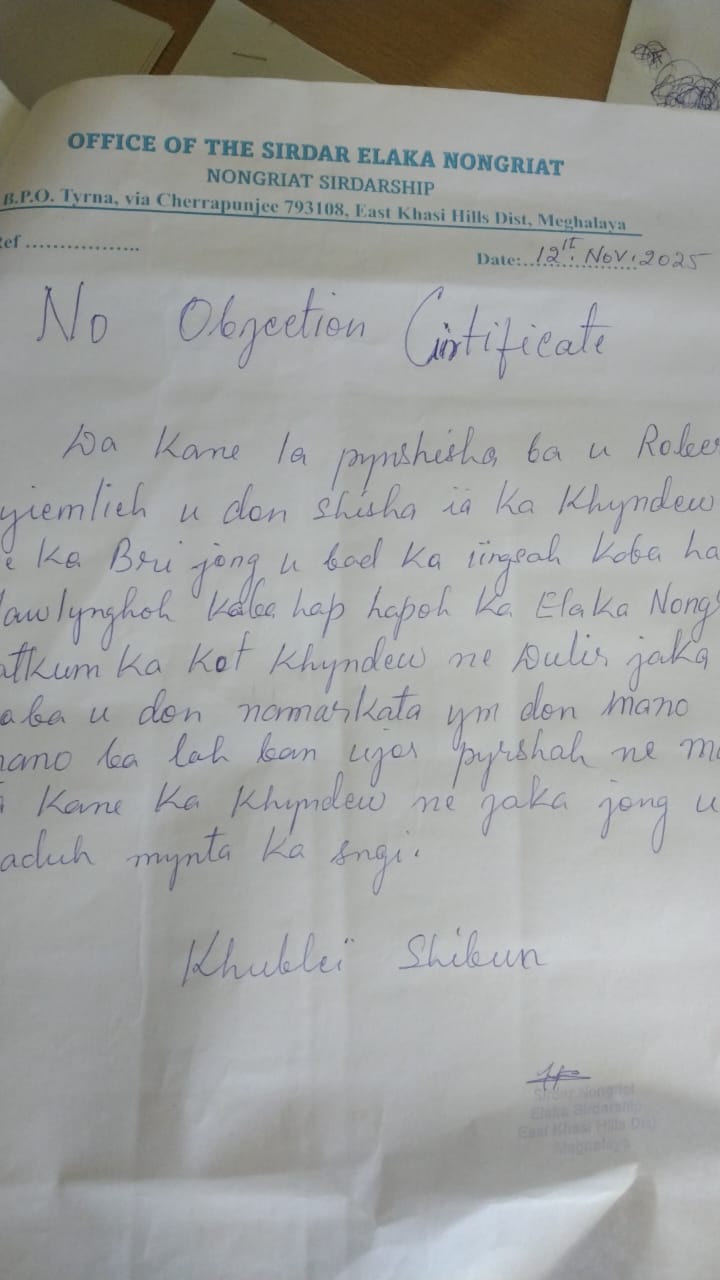 OFFICE OF THE SIRDAR ELAKA NONGRIAT
NONGRIAT SIRDARSHIP
B.P.O. Tyrna, via Cherrapunjee 793108, East Khasi Hills Dist, Meghalaya
Ref ................. Date:..12th. Nov. 2025
No Objection Cirtificate
Da Kane la pynshisha ba u Rober
yiemlieh u don shisha ia ka Khyndew
e ka Bri jong u bad ka iingsah kaba ha
lawlyngkoh kaba hap hapoh ka Elaka Nong
atkum ka kot Khyndew ne Dulir jaka
aba u don namarkata ym don mano
mano ba lah ban ujor pyrshah ne
Kane ka Khyndew ne jaka jong u
aduh mynta ka sngi.
Khublei Shibun
Sirdar Nongriat
Elaka Sirdarship
East Khasi Hills Dist
Meghalaya